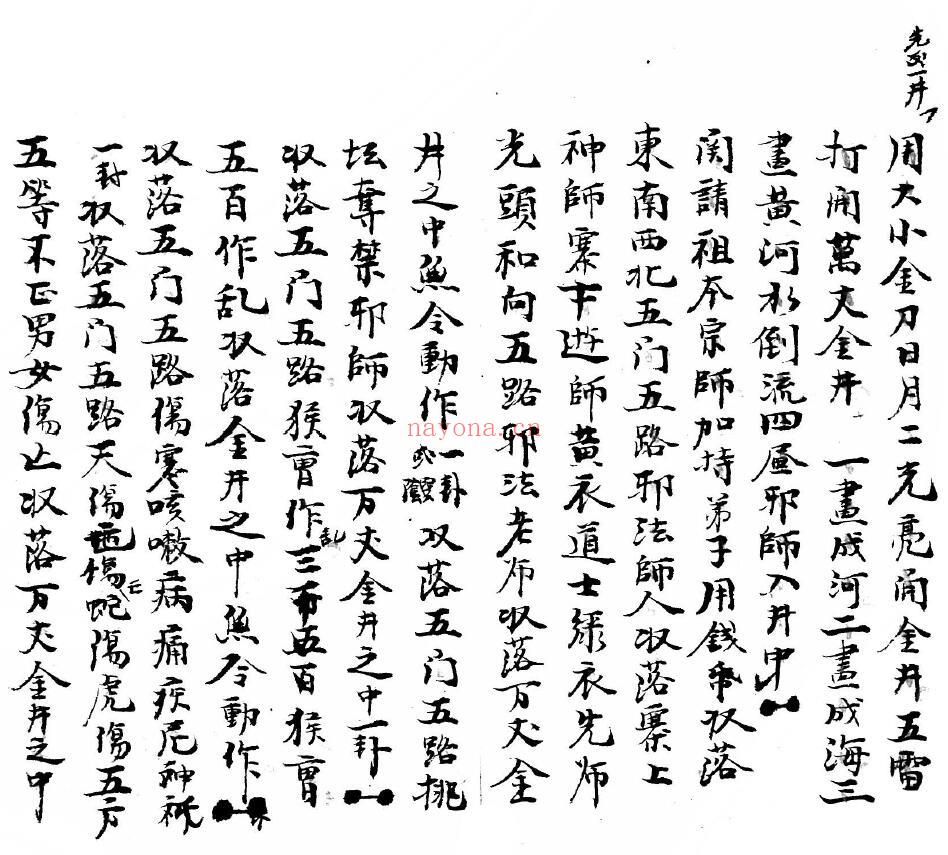 先到一井
用大小金刀日月二光亮開金井五雷
打開萬丈金井 一畫成河二畫成海三
畫黃河水倒流四畫邪師入井中
関請祖本宗師加持弟子用錢爭收落
東南西北五门五路邪法師人收落寨上
神師寨下遊師黃衣道士綠衣先师
光頭和尚五路邪法老师收落万丈金
井之中無令動作一卦 或陰 收落五门五路挑
坛奪禁邪師收落万丈金井之中一卦
收落五门五路猴曺作乱三千五百猴曺
五百作乱收落金井之中無令動作
收落五门五路傷寒咳嗽病痛疾厄神祇
一卦收落五门五路天傷 傷亡蛇傷虎傷五方
五等不正男女傷亡收落万丈金井之中
nayona.cn